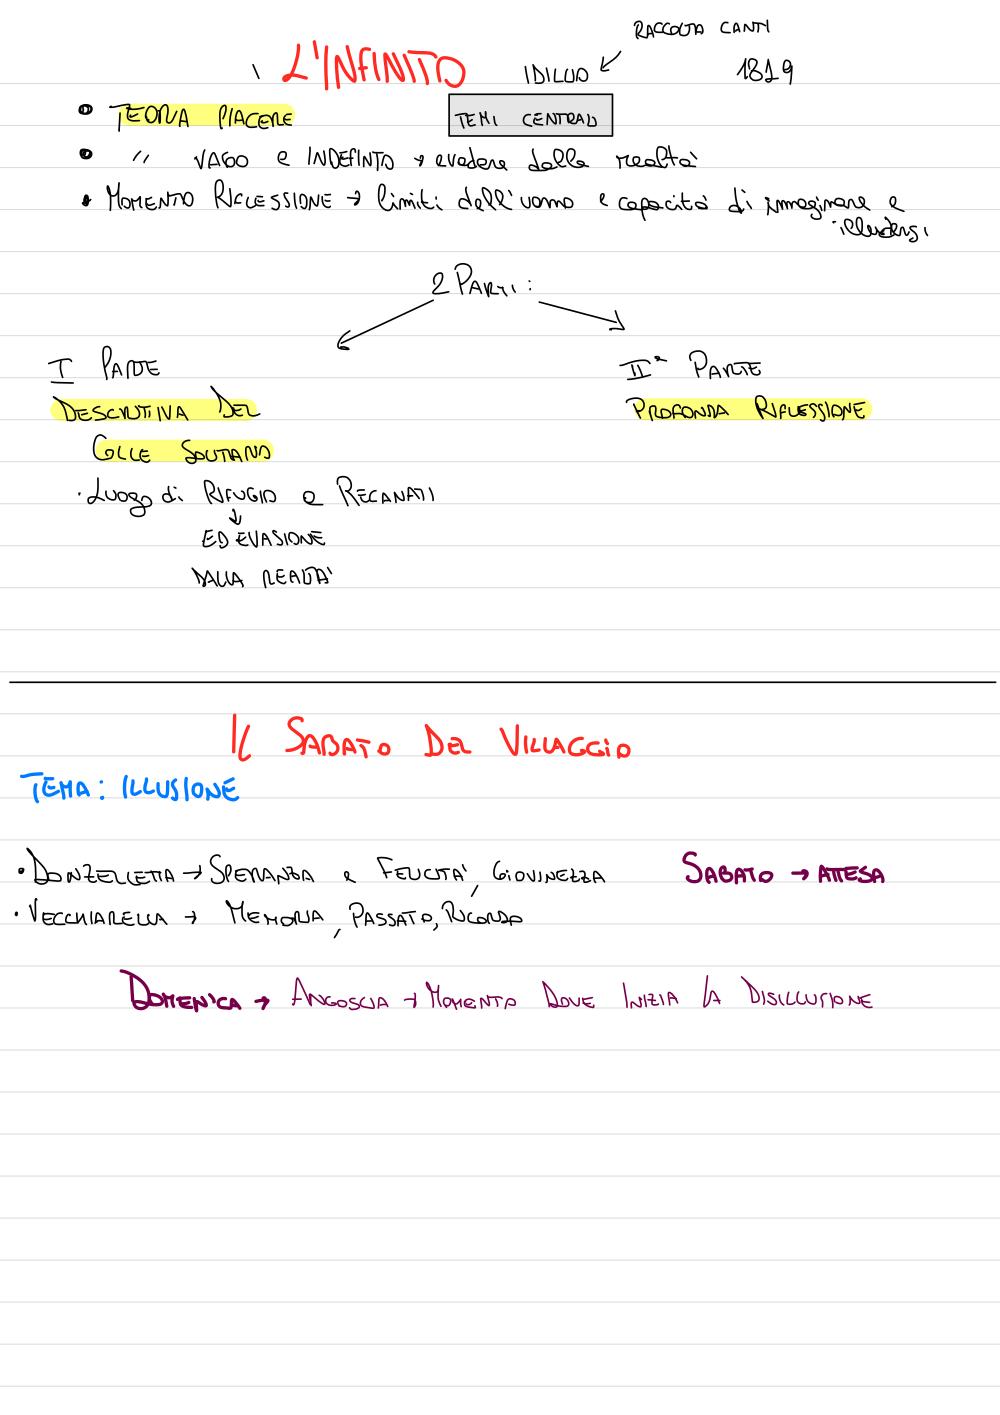 RACCOLTA CANTI
L'INFINITO IDILLIO 1819
• TEORIA PIACERE TEMI CENTRALI
• " VAGO e INDEFINTO → evadere dalla realtà
• MOMENTO RIFLESSIONE → limiti dell'uomo e capacità di immaginare e
illudersi
2 PARTI:
I PARTE IIª PARTE
DESCRITTIVA DEL PROFONDA RIFLESSIONE
COLLE SOLITARIO
• Luogo di RIFUGIO a RECANATI
↓
ED EVASIONE
DALLA REALTA'
IL SABATO DEL VILLAGGIO
TEMA: ILLUSIONE
• DONZELLETTA → SPERANZA e FELICITA', GIOVINEZZA SABATO → ATTESA
• VECCHIARELLA → MEMORIA, PASSATO, RICORDO
DOMENICA → ANGOSCIA → MOMENTO DOVE INIZIA LA DISILLUSIONE